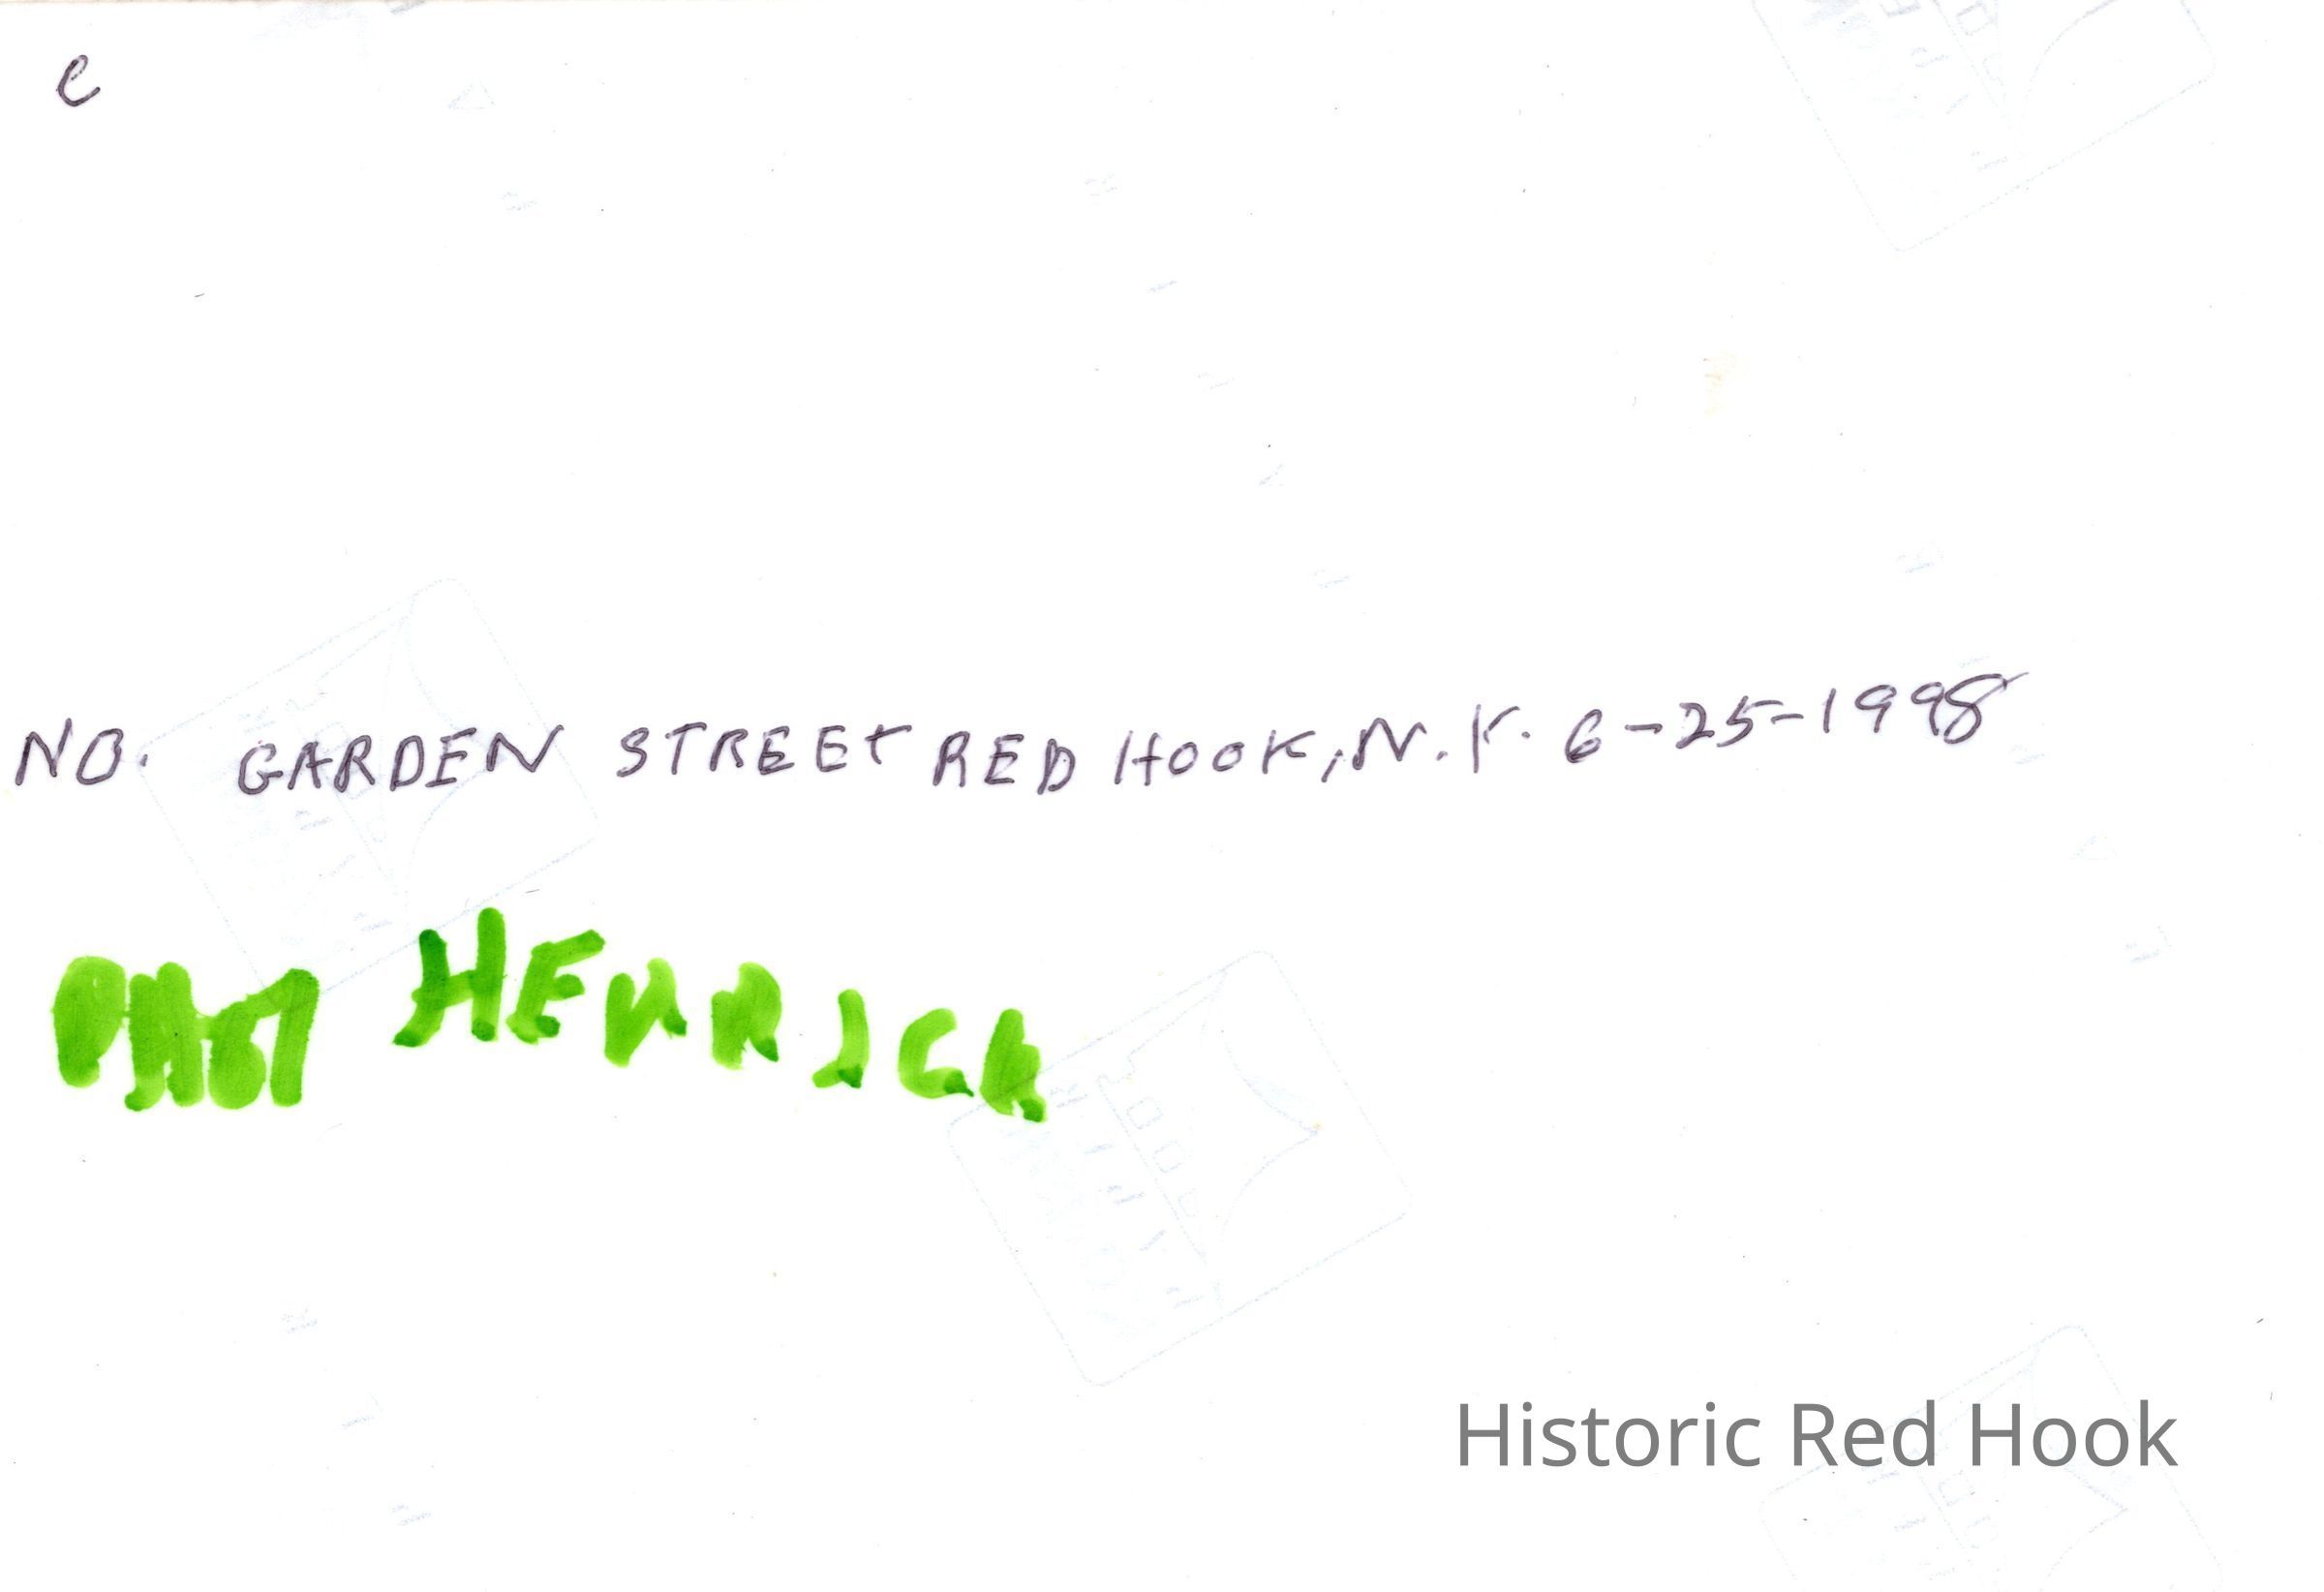 e
NO. GARDEN STREET RED HOOK, N.Y. 6-25-1998
HENRICK
Historic Red Hook